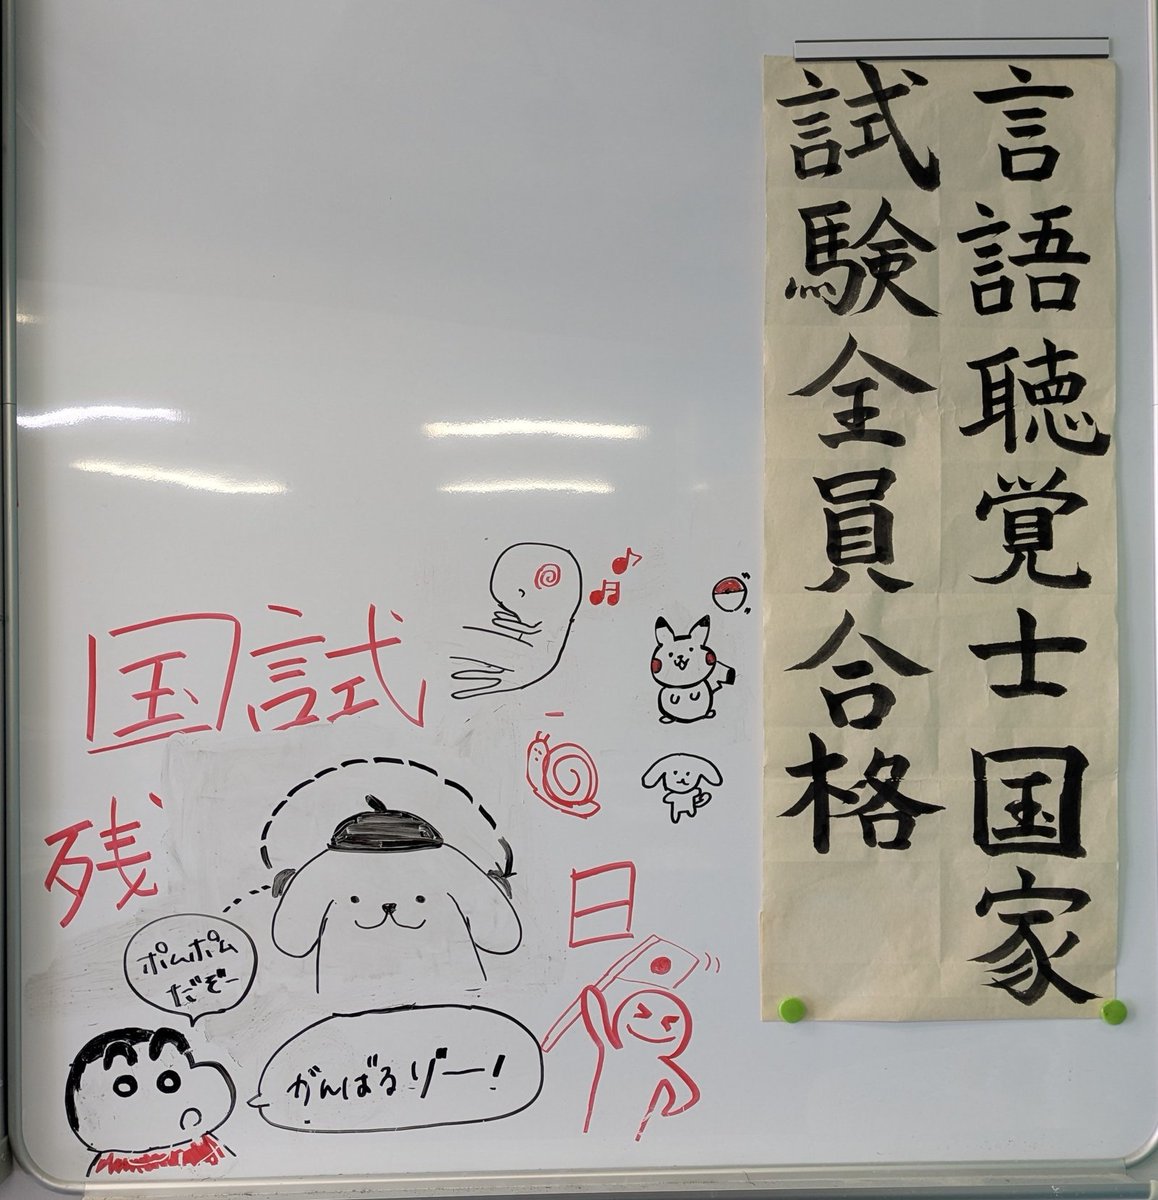 言語聴覚士国家
試験全員合格
国試
残
日
ポムポム
だぞー
がんばるゾー!